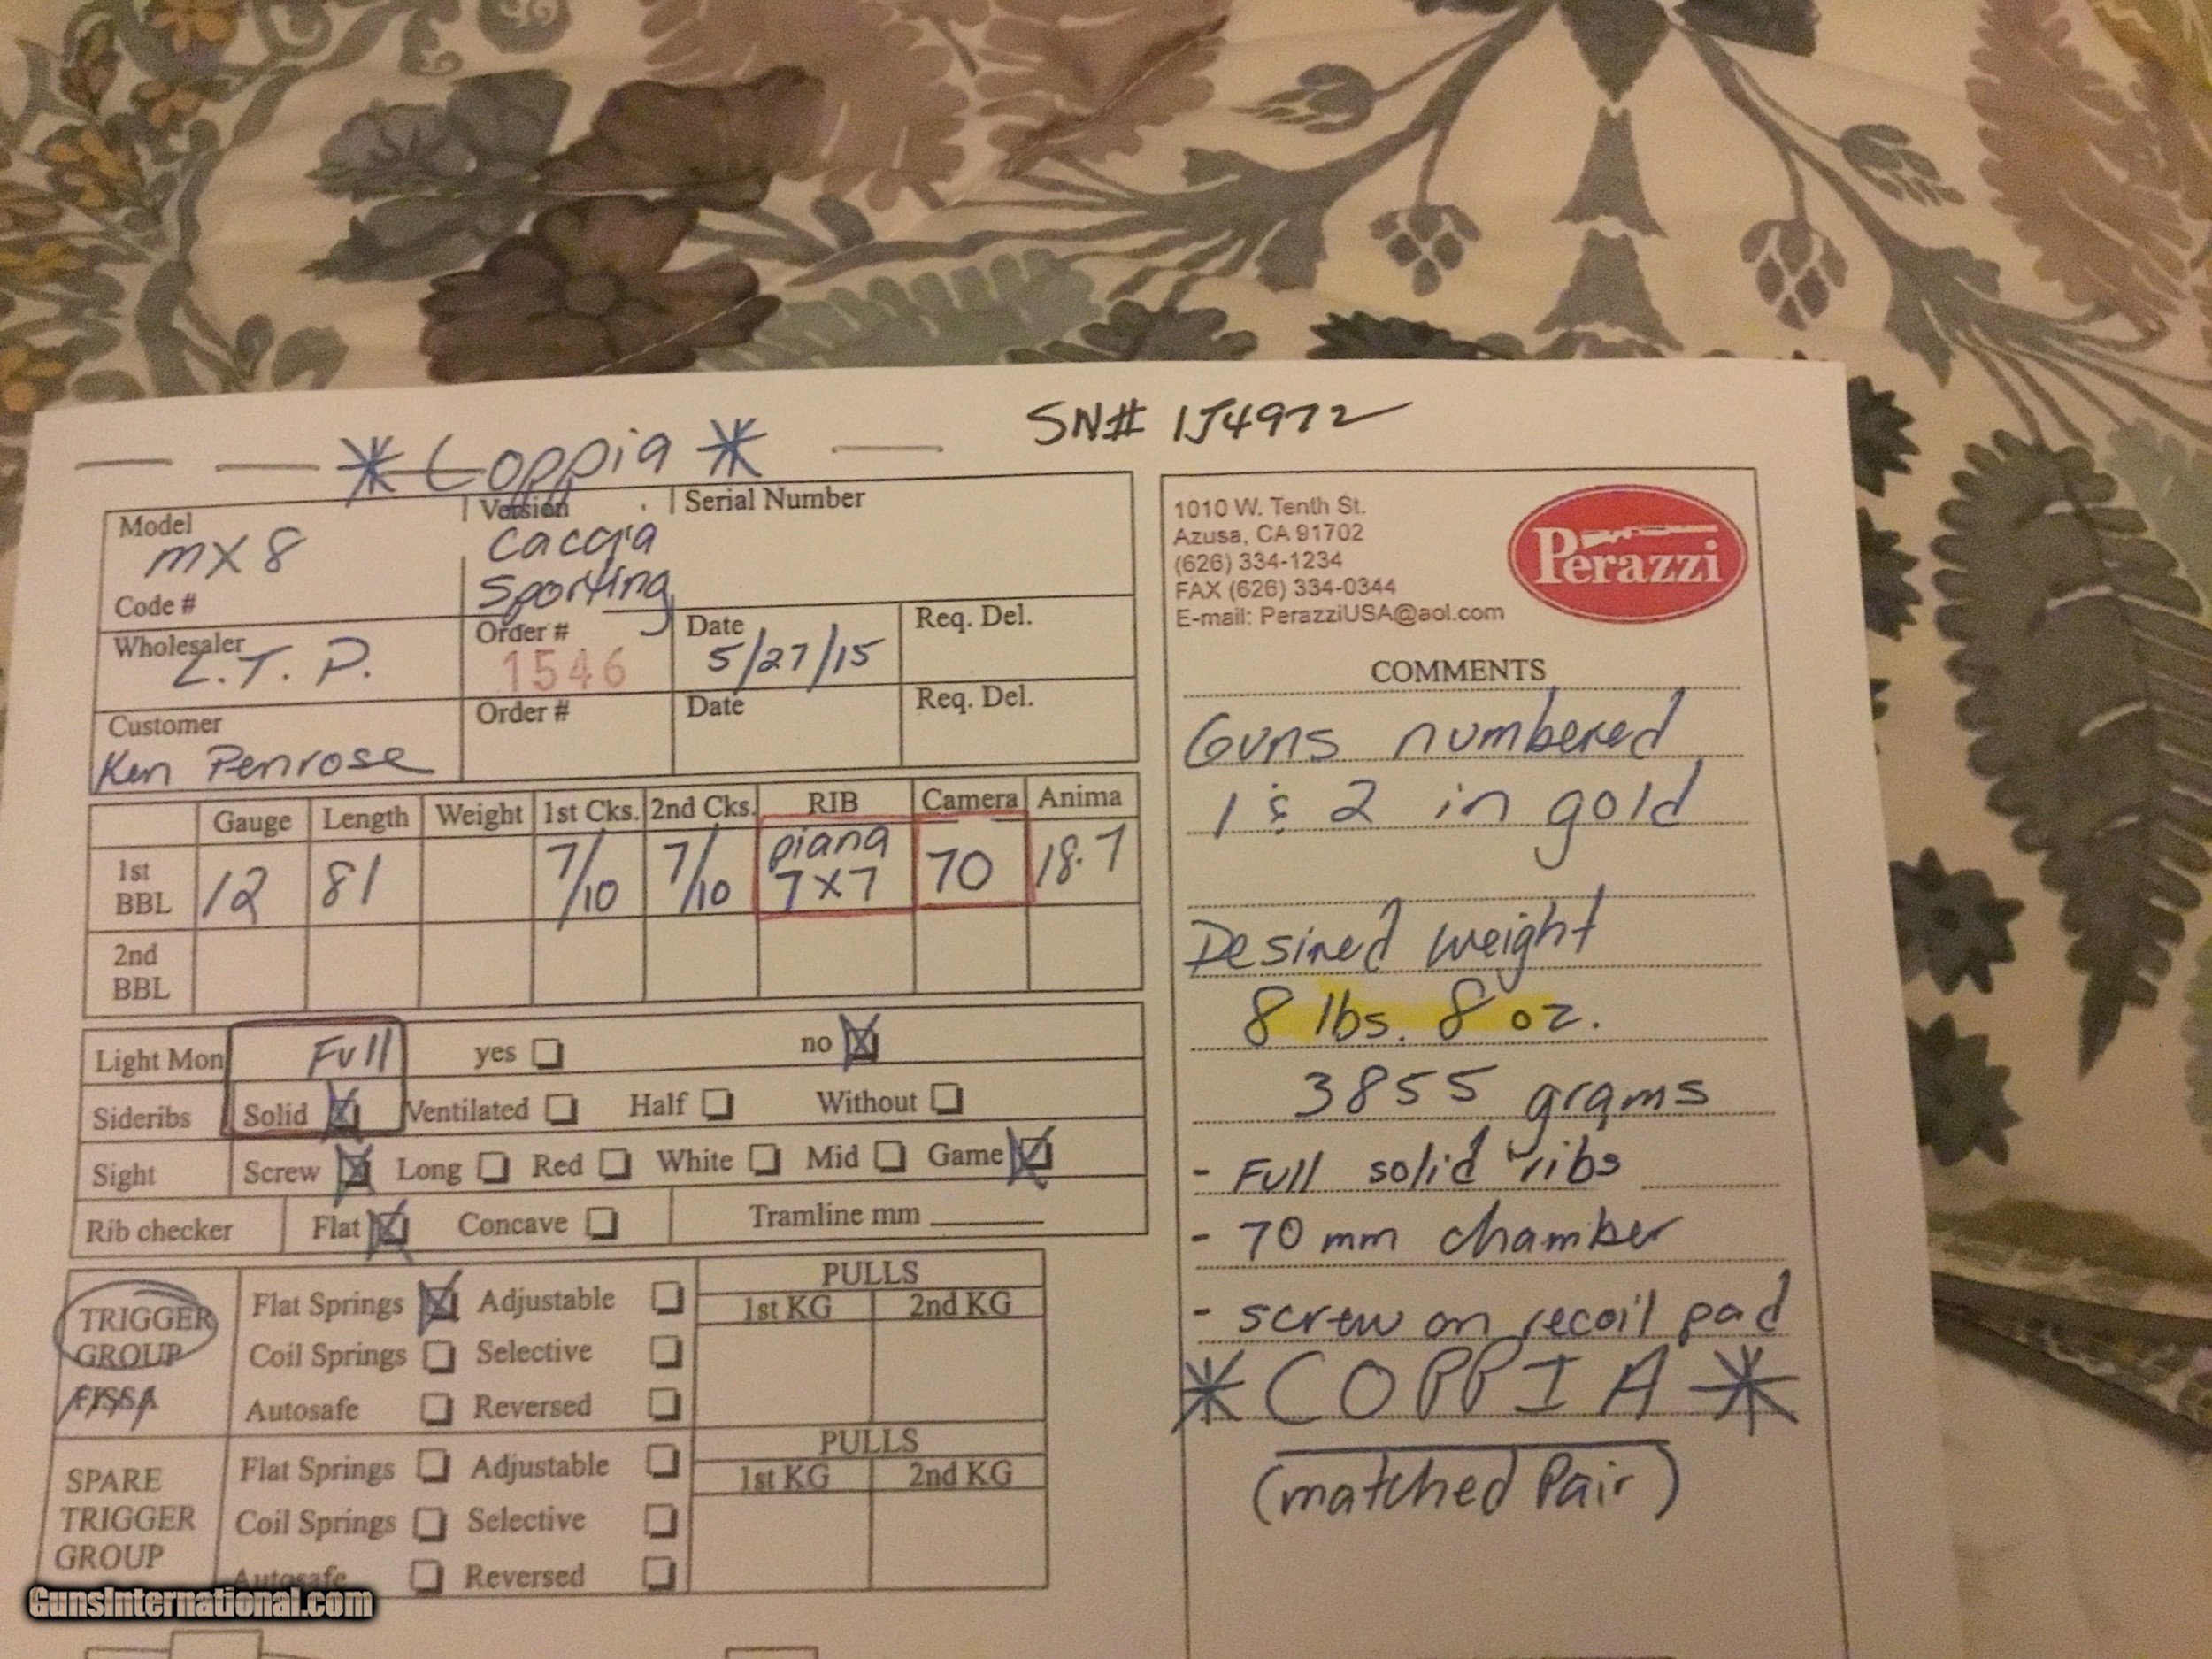 *Coppia* SN# 1J4972
Model Version Serial Number
MX 8 Caccia
Sporting
Code #
Wholesaler Order # Date Req. Del.
L.T.P. 1546 5/27/15
Customer Order # Date Req. Del.
Ken Penrose
Gauge Length Weight 1st Cks. 2nd Cks. RIB Camera Anima
1st BBL 12 81 7/10 7/10 piana 7x7 70 18.7
2nd BBL
Light Mon Full yes no
Sideribs Solid Ventilated Half Without
Sight Screw Long Red White Mid Game
Rib checker Flat Concave Tramline mm
TRIGGER GROUP FISSA
Flat Springs Adjustable
Coil Springs Selective
Autosafe Reversed
PULLS
1st KG 2nd KG
SPARE TRIGGER GROUP
Flat Springs Adjustable
Coil Springs Selective
Autosafe Reversed
PULLS
1st KG 2nd KG
1010 W. Tenth St.
Azusa, CA 91702
(626) 334-1234
FAX (626) 334-0344
E-mail: PerazziUSA@aol.com
Perazzi
COMMENTS
Guns numbered
1 & 2 in gold
Desired weight
8 lbs. 8 oz.
3855 grams
- Full solid ribs
- 70 mm chamber
- screw on recoil pad
* COPPIA *
(matched Pair)
GunsInternational.com